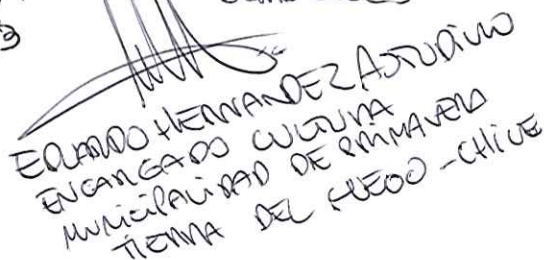 3
EDUARDO HERNANDEZ ASTUDILLO
ENCARGADO CULTURA
MUNICIPALIDAD DE PRIMAVERA
TIERRA DEL FUEGO - CHILE